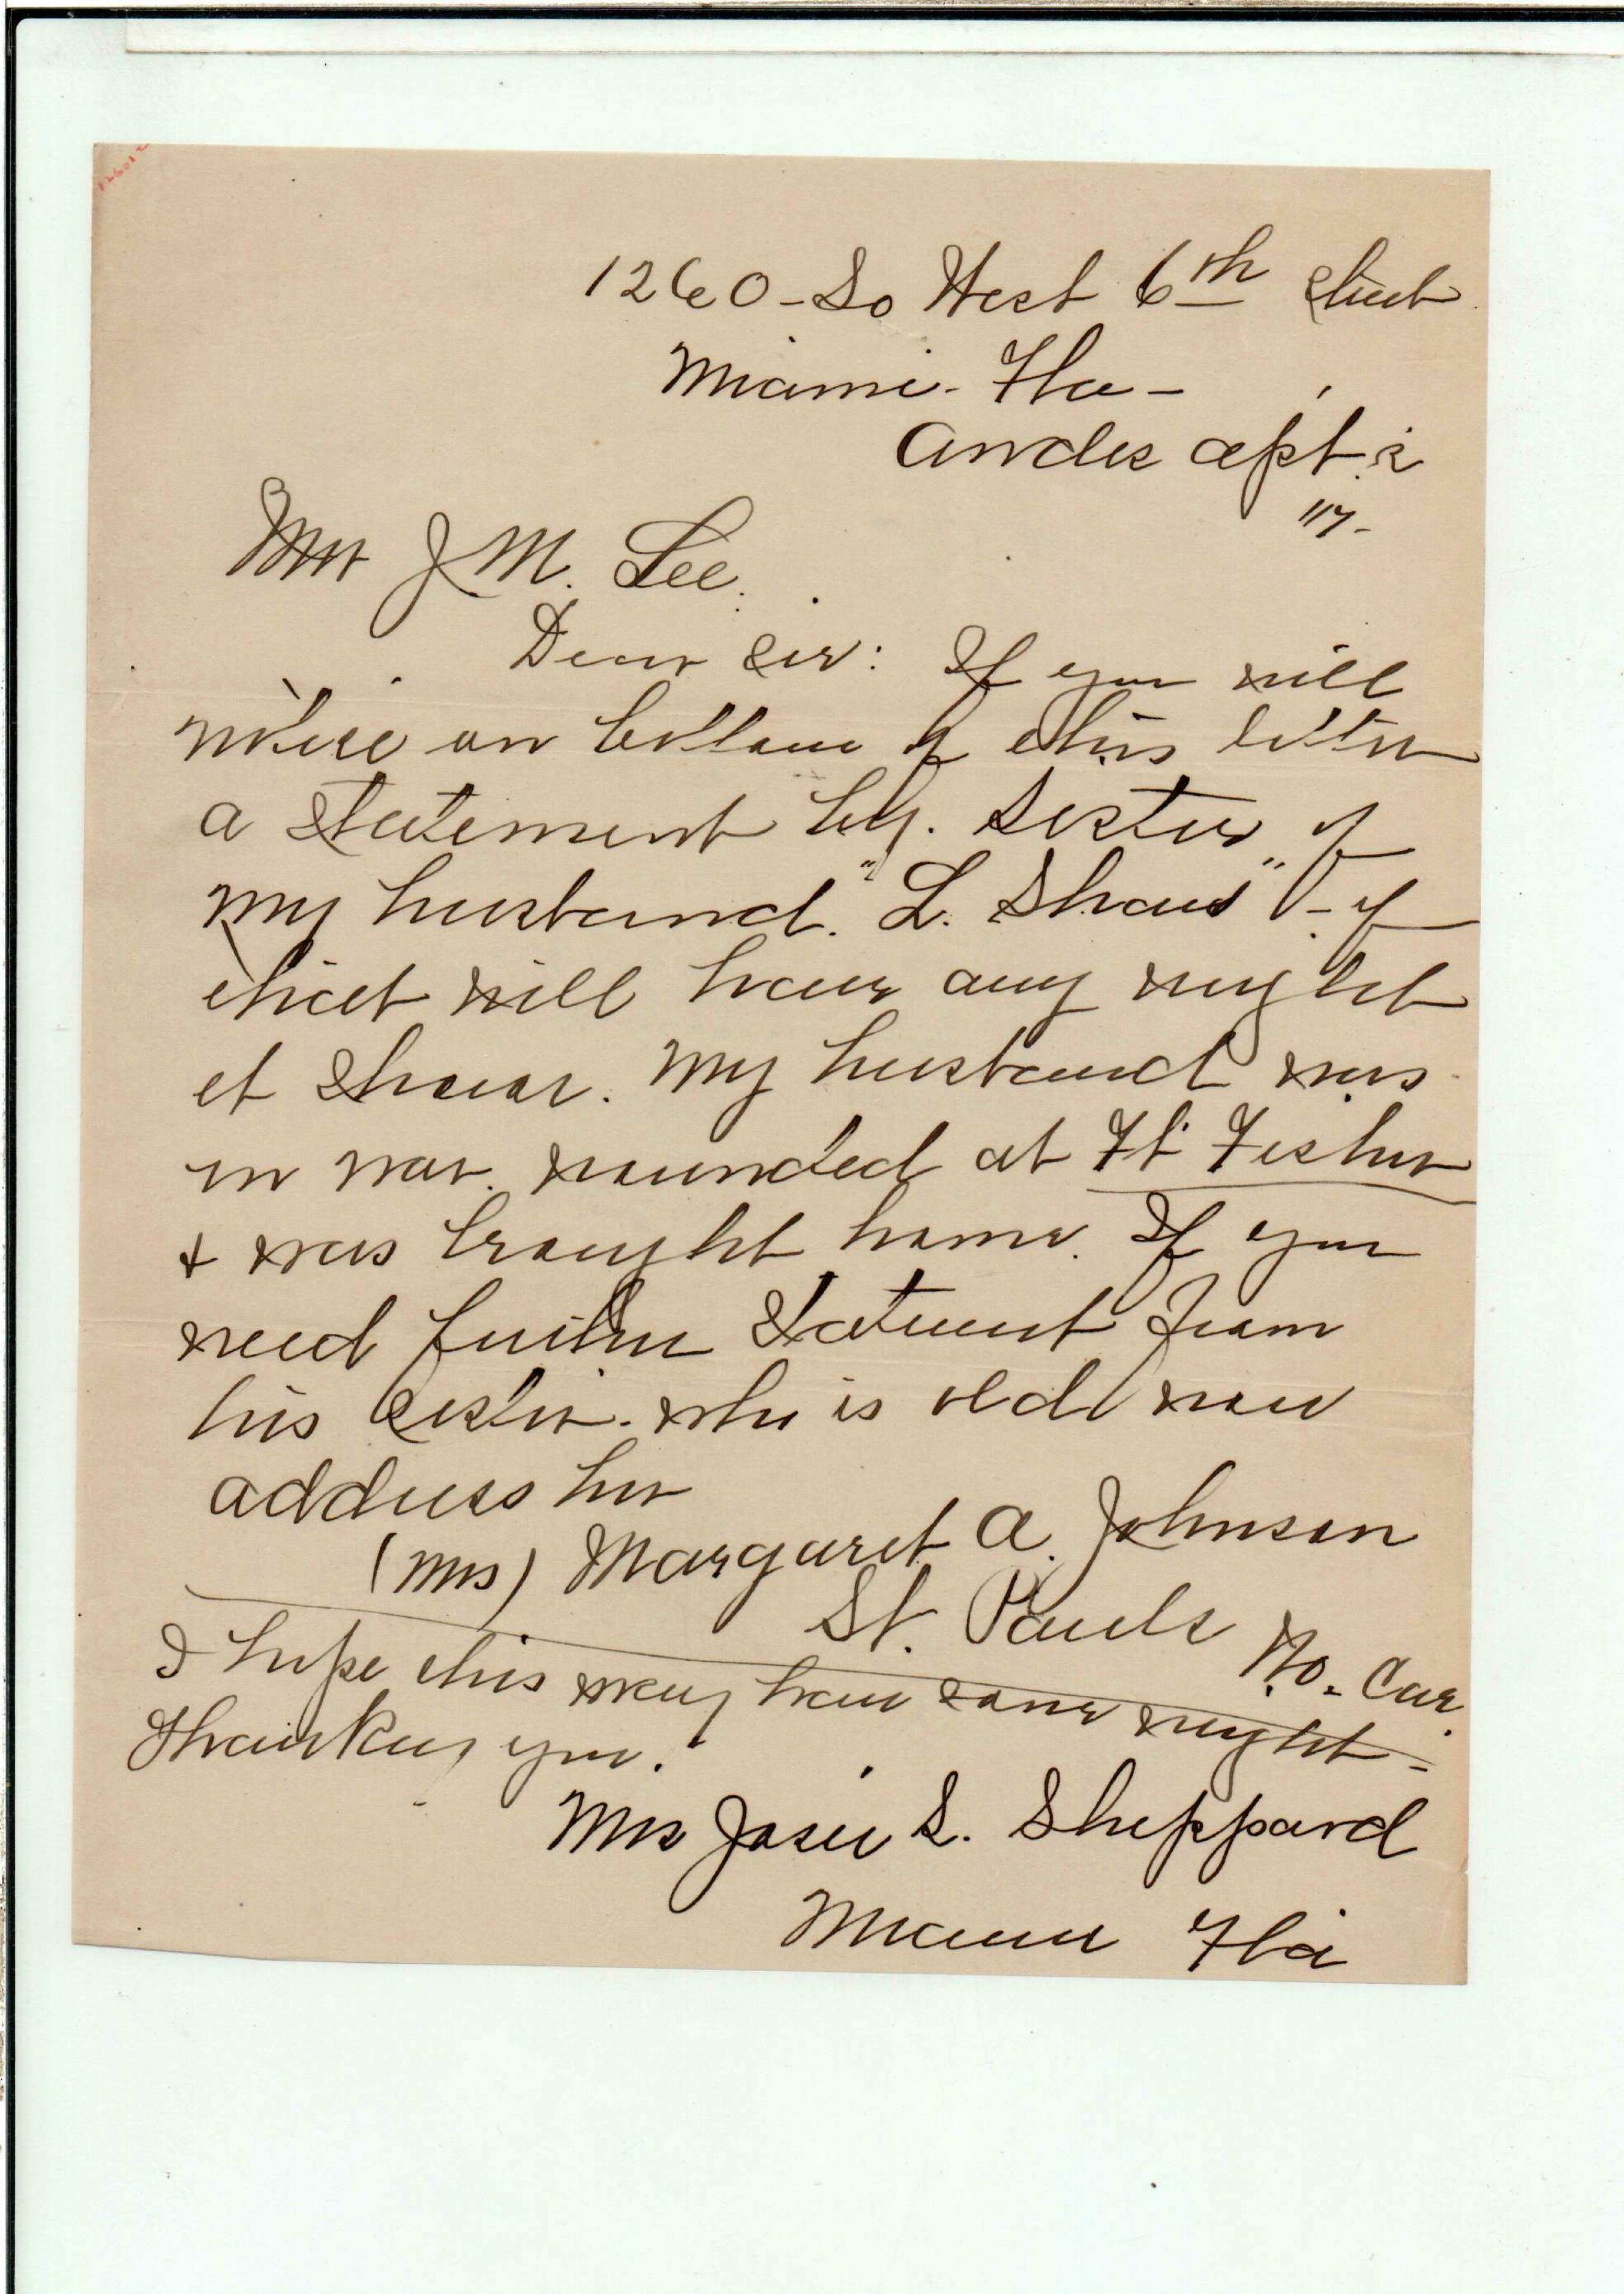 1260 - So West 6th street
Miami - Fla -
Andes apt's
117 -
Mr J M. Lee.
Dear sir: If you will
notice on bottom of this letter
a statement by. sister of
my husband. "L. Shaw" - if
that will have any weight
et Shaw. My husband was
in war. wounded at Ft Fisher
& was brought home. If you
need further statement from
his sister. who is old now
address her
(Mrs) Margaret A. Johnson
St. Pauls No. Car.
I hope this may have some weight -
Thanking you.
Mrs Josie S. Sheppard
Miami Fla